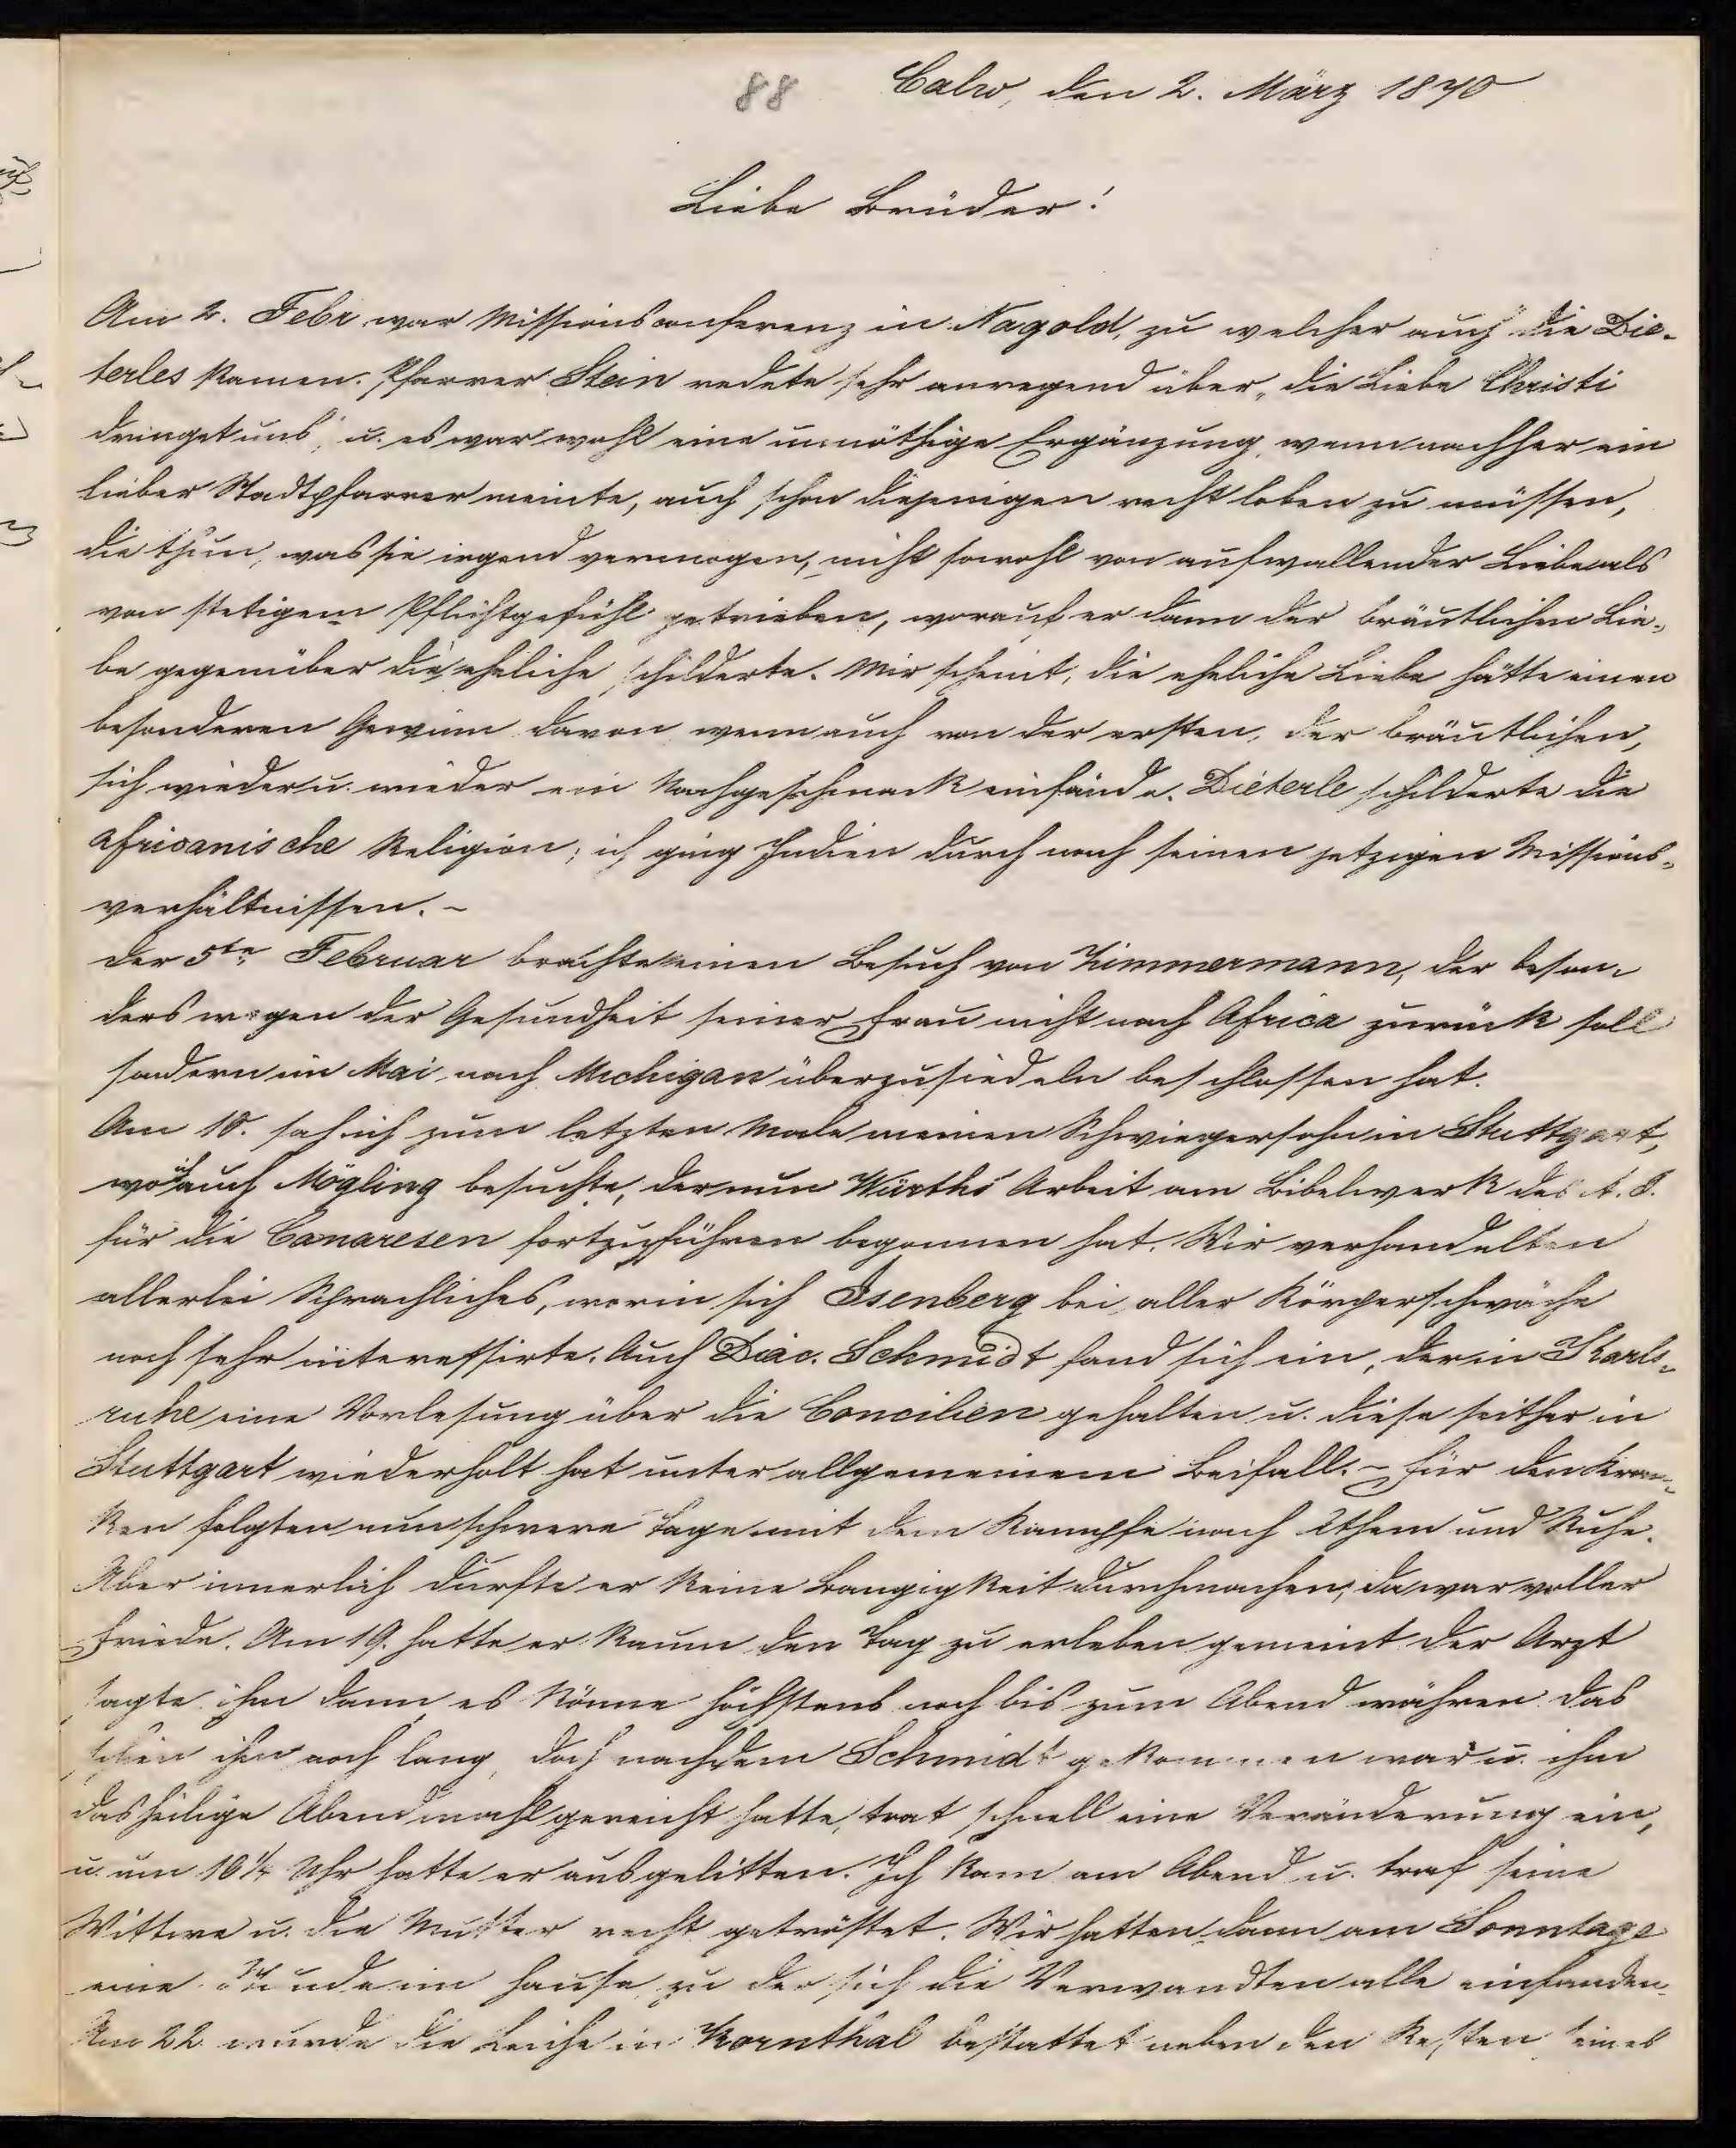 88 Calw, den 2. März 1870
Liebe Brüder!
Am 2. Febr. war Missionsconferenz in Nagold, zu welcher auch die Die-
terles kamen. Pfarrer Stein redete sehr anregend über „die Liebe Christi
dringet uns", u. es war wohl eine unnöthige Ergänzung, wenn nachher ein
lieber Stadtpfarrer meinte, auch schon diejenigen recht loben zu müssen,
die thun, was sie irgend vermogen, nicht sowohl von aufwallender Liebe als
von stetigem Pflichtgefühl getrieben, worauf er dann der bräutlichen Lie-
be gegenüber die eheliche schilderte. Mir scheint, die eheliche Liebe hätte einen
besonderen Gewinn davon wenn auch von der ersten, der bräutlichen,
sich wieder u. wieder ein Nachgeschmack einfände. Dieterle schilderte die
africanische Religion; ich ging Indien durch nach seinen jetzigen Missions-
verhältnissen. -
Der 5te Februar brachte einen Besuch von Zimmermann, der beson-
ders wegen der Gesundheit seiner Frau nicht nach Africa zurück soll
sondern im Mai nach Michigan überzusiedeln beschlossen hat.
Am 10. sah ich zum letzten Male meinen Schwiegersohn in Stuttgart,
wo ich auch Mögling besuchte, der nun Würths Arbeit am Bibelwerk des A. T.
für die Canaresen fortzuführen begonnen hat. Wir verhandelten
allerlei Sprachliches, worin sich Isenberg bei aller Körperschwäche
noch sehr interessirte. Auch Diac. Schmidt fand sich ein, der in Karls-
ruhe eine Vorlesung über die Concilien gehalten u. diese seither in
Stuttgart wiederholt hat unter allgemeinem Beifall. - Für den Kran-
ken folgten nun schwere Tage mit dem Kampfe nach Athem und Ruhe.
Aber innerlich durfte er keine Bangigkeit durchmachen, da war voller
Friede. Am 19. hatte er kaum den Tag zu erleben gemeint der Arzt
sagte ihm dann es könne höchstens noch bis zum Abend währen das
schien ihm noch lang, doch nachdem Schmidt gekommen war u. ihm
das heilige Abendmahl gereicht hatte, trat schnell eine Veränderung ein,
u. um 10 1/4 Uhr hatte er ausgelitten. Ich kam am Abend u. traf seine
Wittwe u. die Mutter recht getröstet. Wir hatten dann am Sonntage
eine Stunde im Hause zu der sich die Verwandten alle einfanden.
Am 22 wurde die Leiche in Kornthal bestattet neben den Resten seines